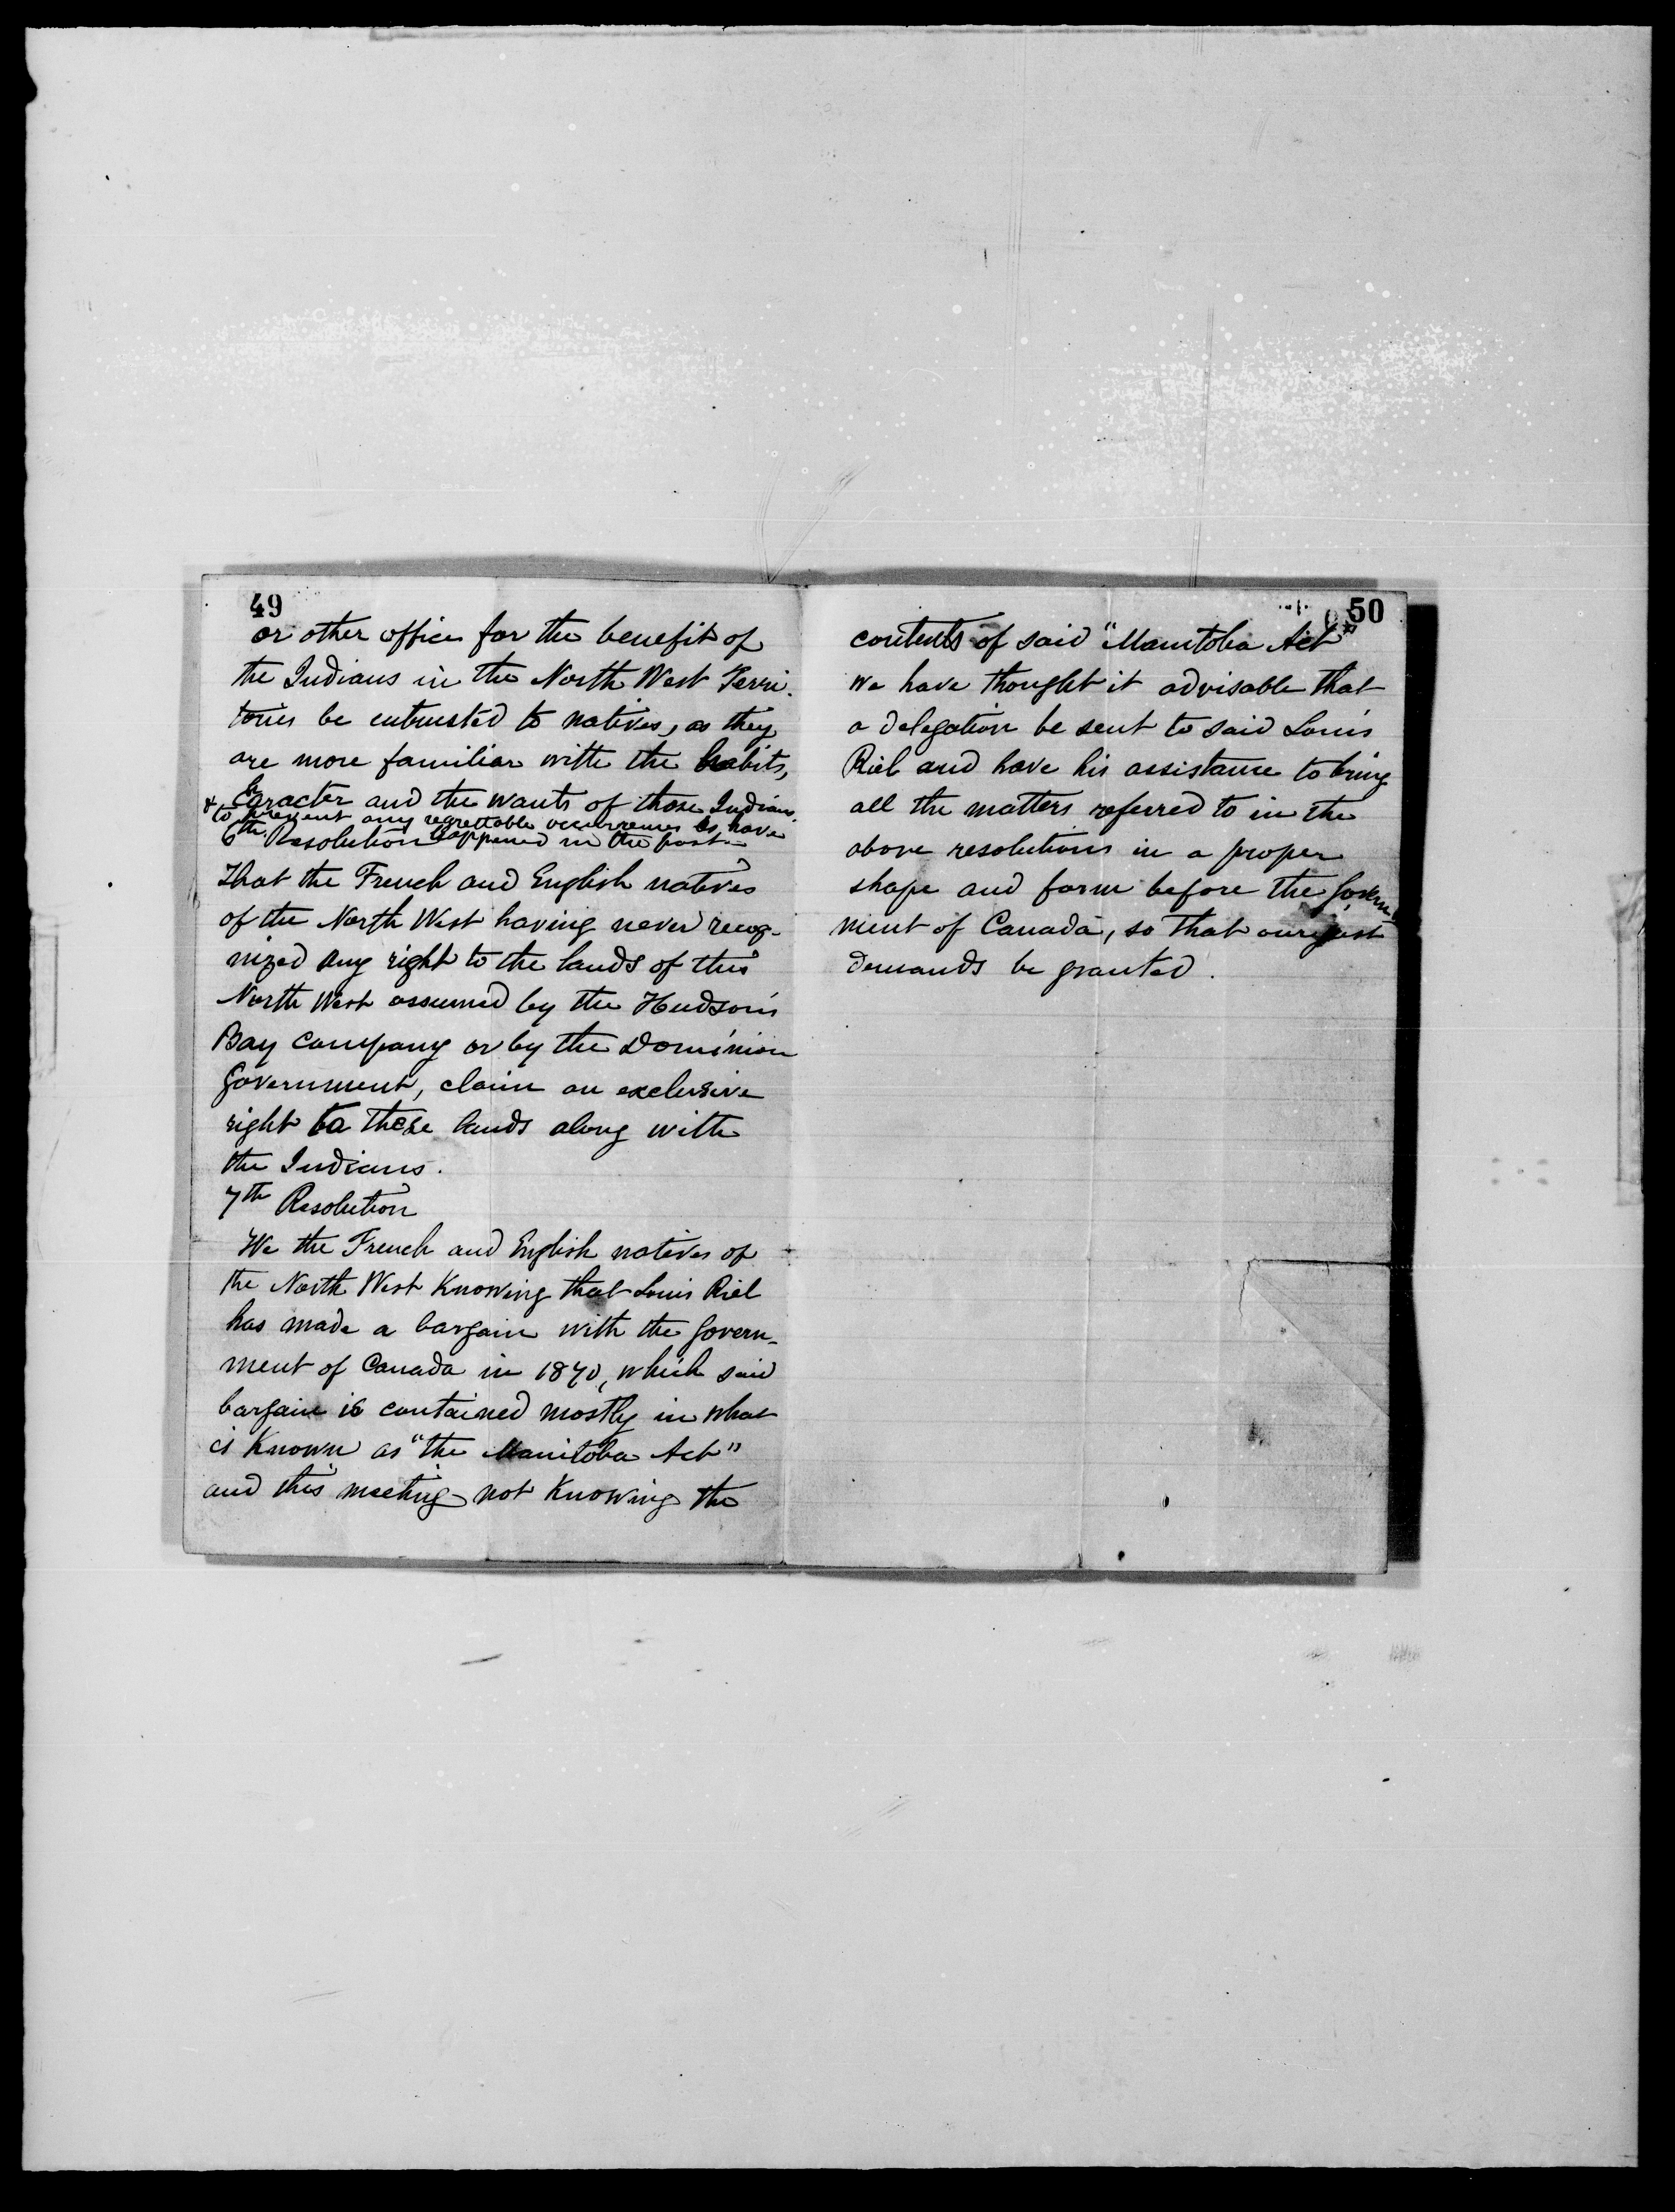 49
or other office for the benefit of
the Indians in the North West Terri-
tories be entrusted to natives, as they
are more familiar with the habits,
character and the wants of those Indians.
& to prevent any regrettable occurrences as have
happened in the past
6th Resolution
That the French and English natives
of the North West having never recog-
nized any right to the lands of this
North West assumed by the Hudson's
Bay Company or by the Dominion
Government, claim an exclusive
right to these lands along with
the Indians.
7th Resolution
We the French and English natives of
the North West Knowing that Louis Riel
has made a bargain with the Govern-
ment of Canada in 1870, which said
bargain is contained mostly in what
is Known as "the Manitoba Act"
and this meeting not Knowing the
50
contents of said "Manitoba Act"
we have thought it advisable that
a delegation be sent to said Louis
Riel and have his assistance to bring
all the matters referred to in the
above resolutions in a proper
shape and form before the Govern-
ment of Canada, so that our just
demands be granted.